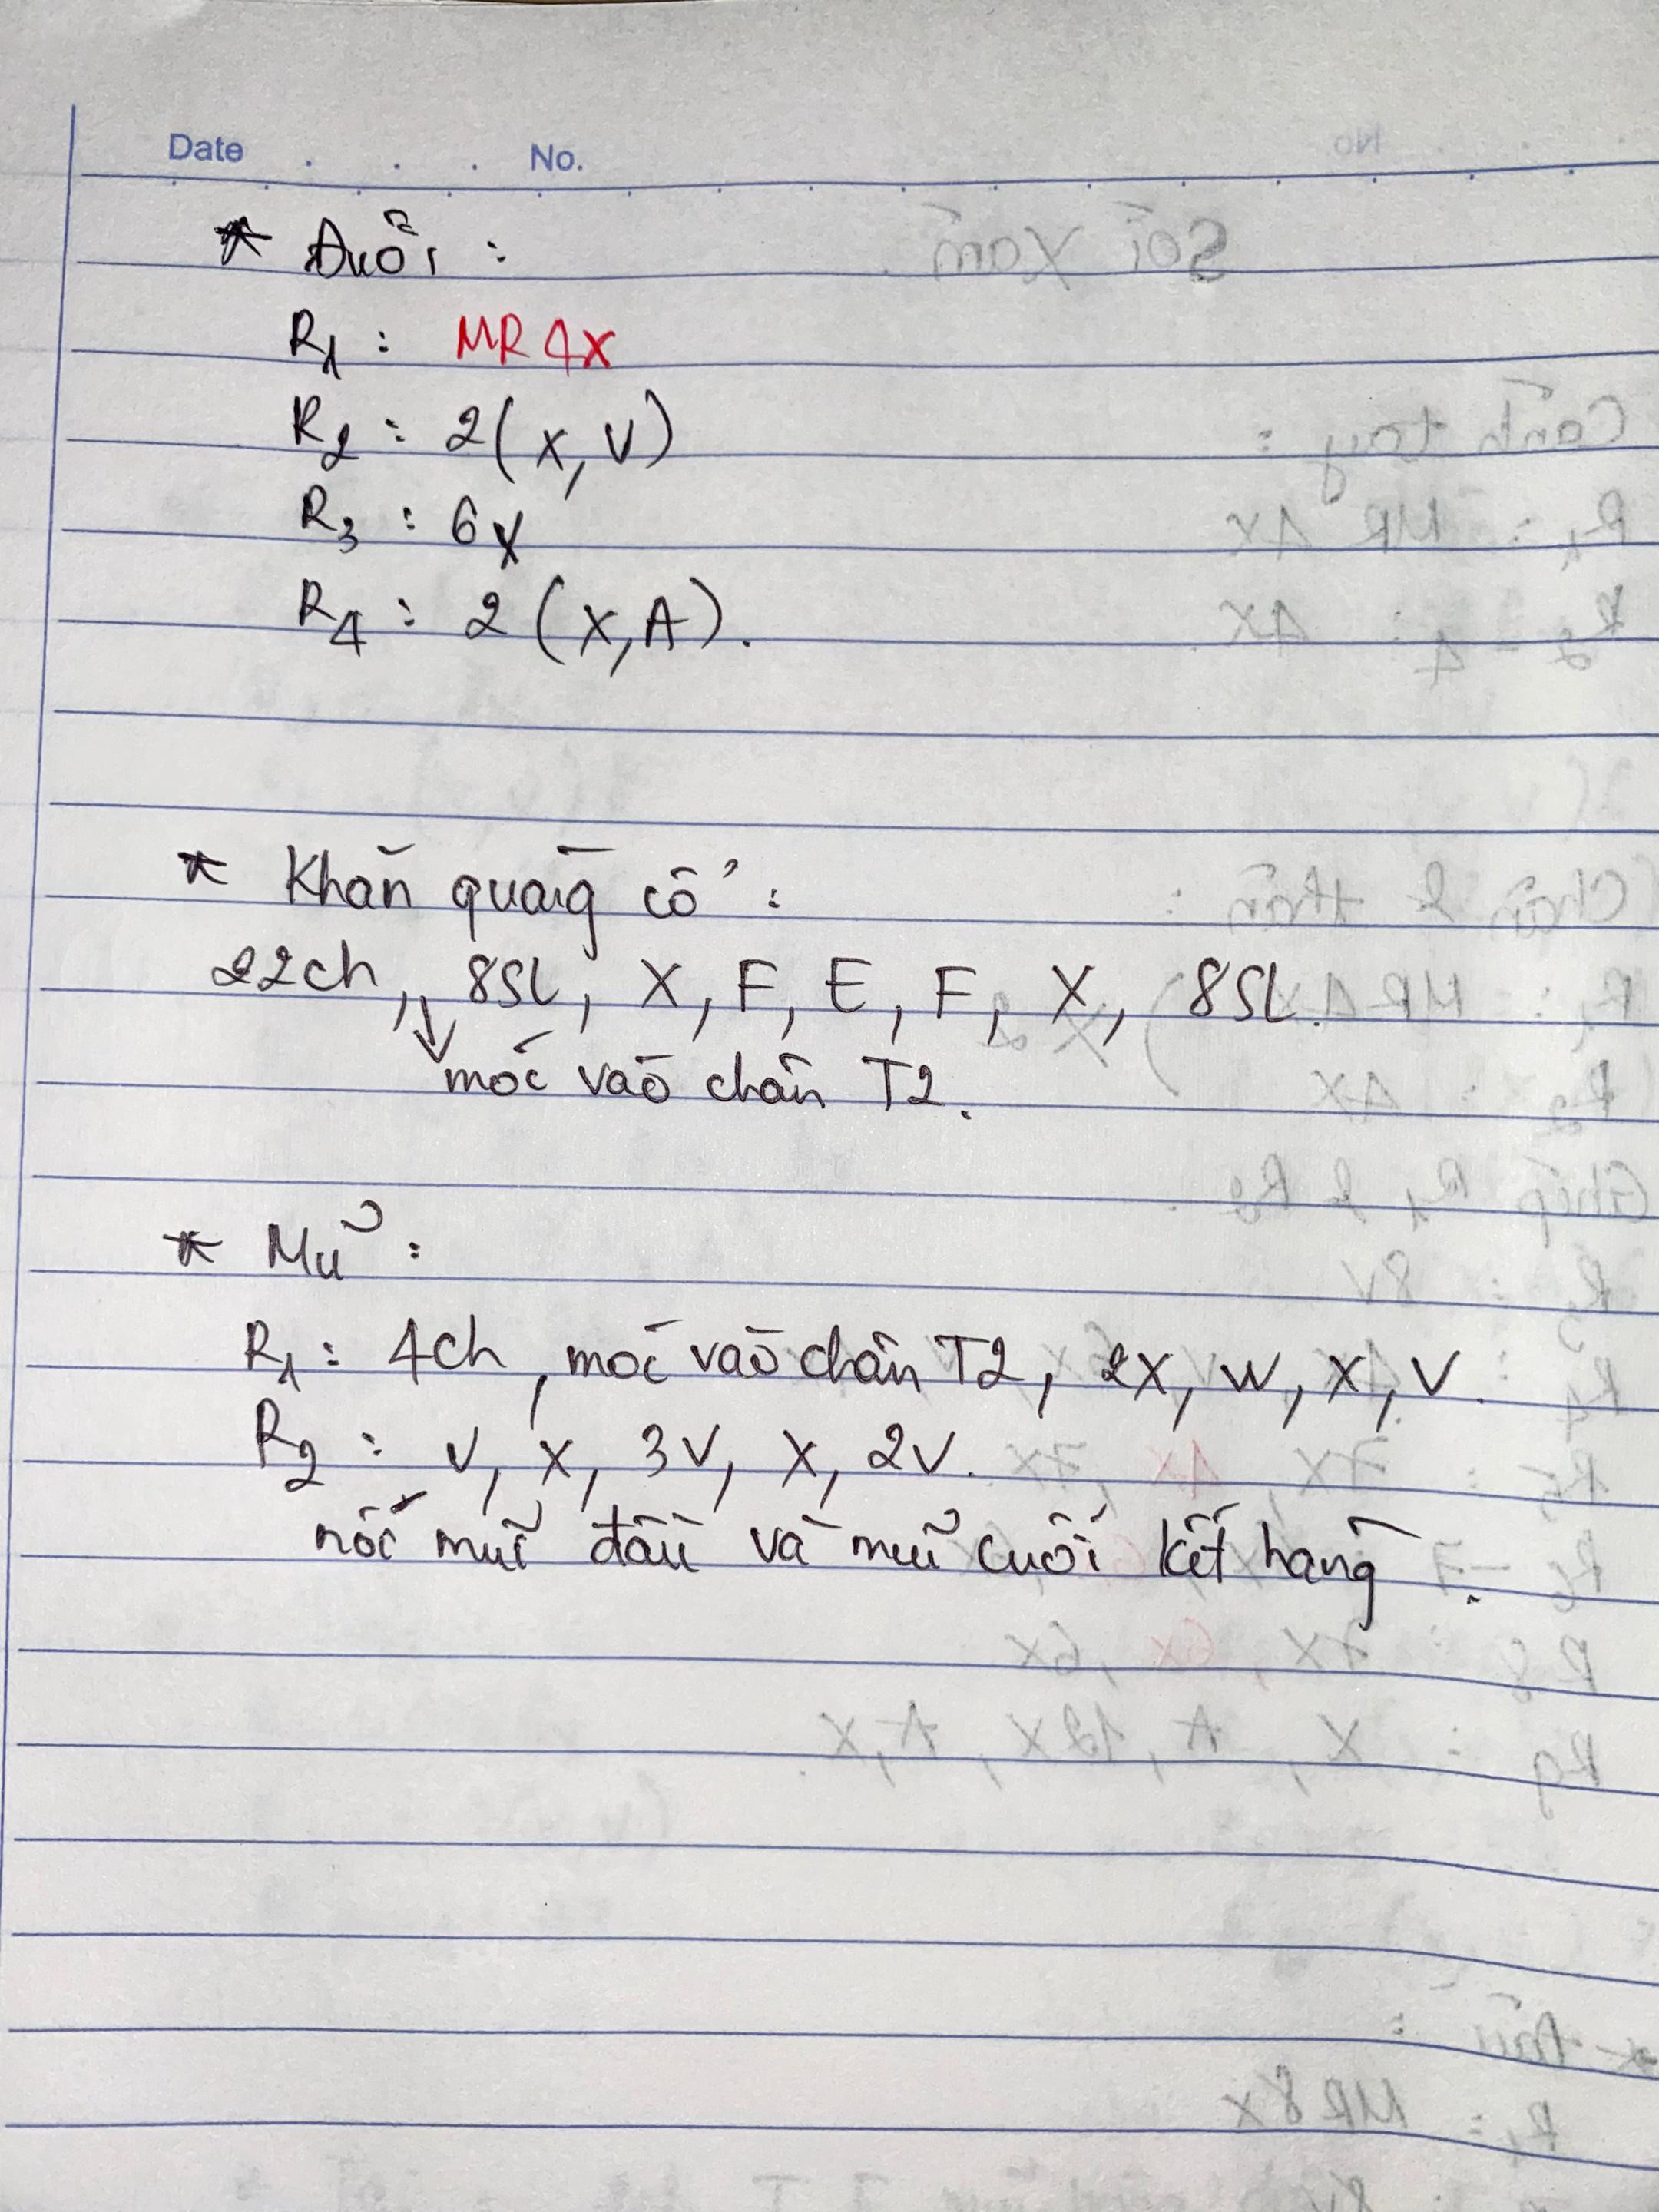 Date . . . No.
* Đuôi :
R1 : MR 4X
R2 : 2(X, V)
R3 : 6X
R4 : 2 (X, A).
* Khăn quàng cổ :
22ch, 8SL, X, F, E, F, X, 8SL.
↓ móc vào chân T2.
* Mũ :
R1 : 4ch, móc vào chân T2, 2X, W, X, V.
R2 : V, X, 3V, X, 2V.
nối mũi đầu và mũi cuối kết hàng.